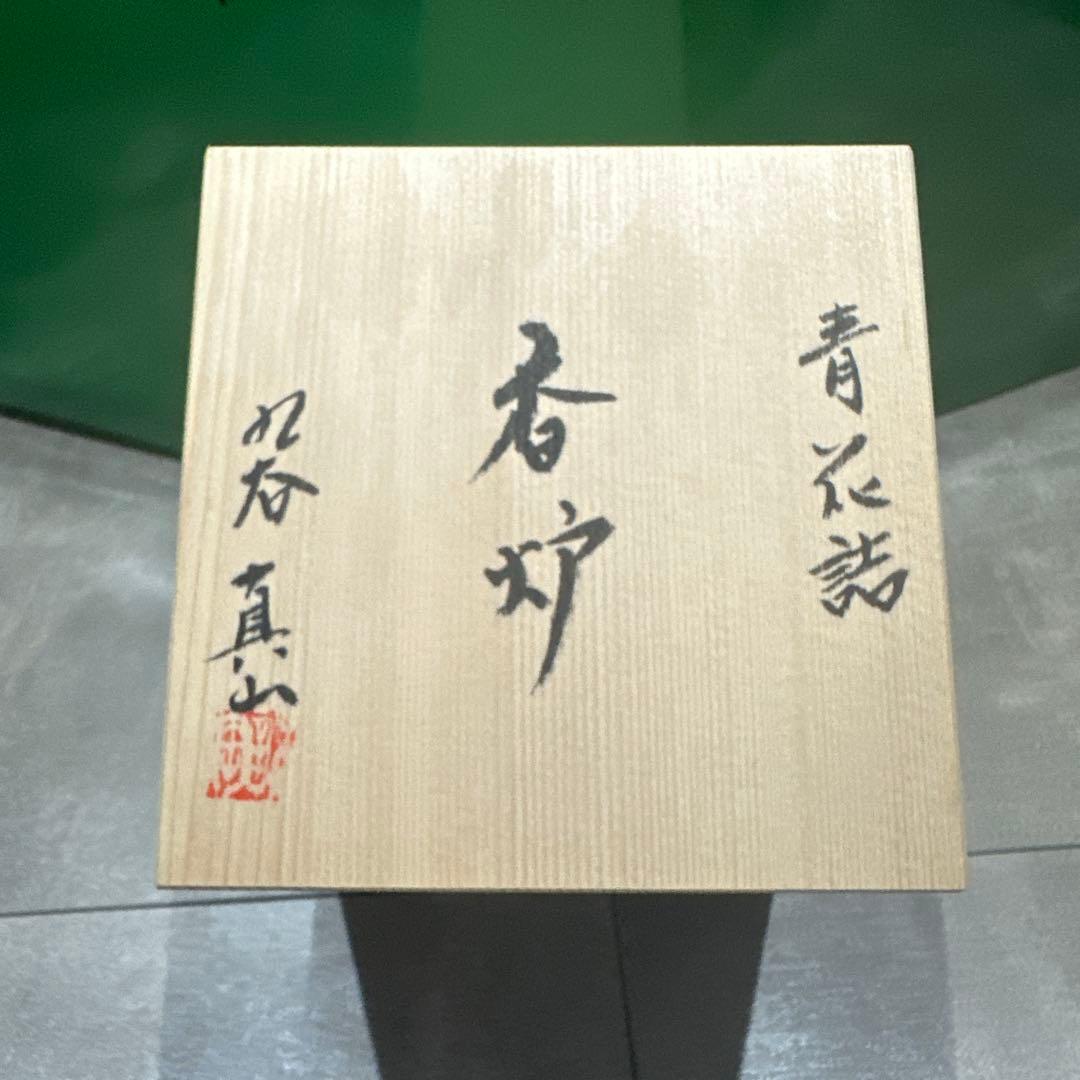 青花詰
香炉
九谷 真山